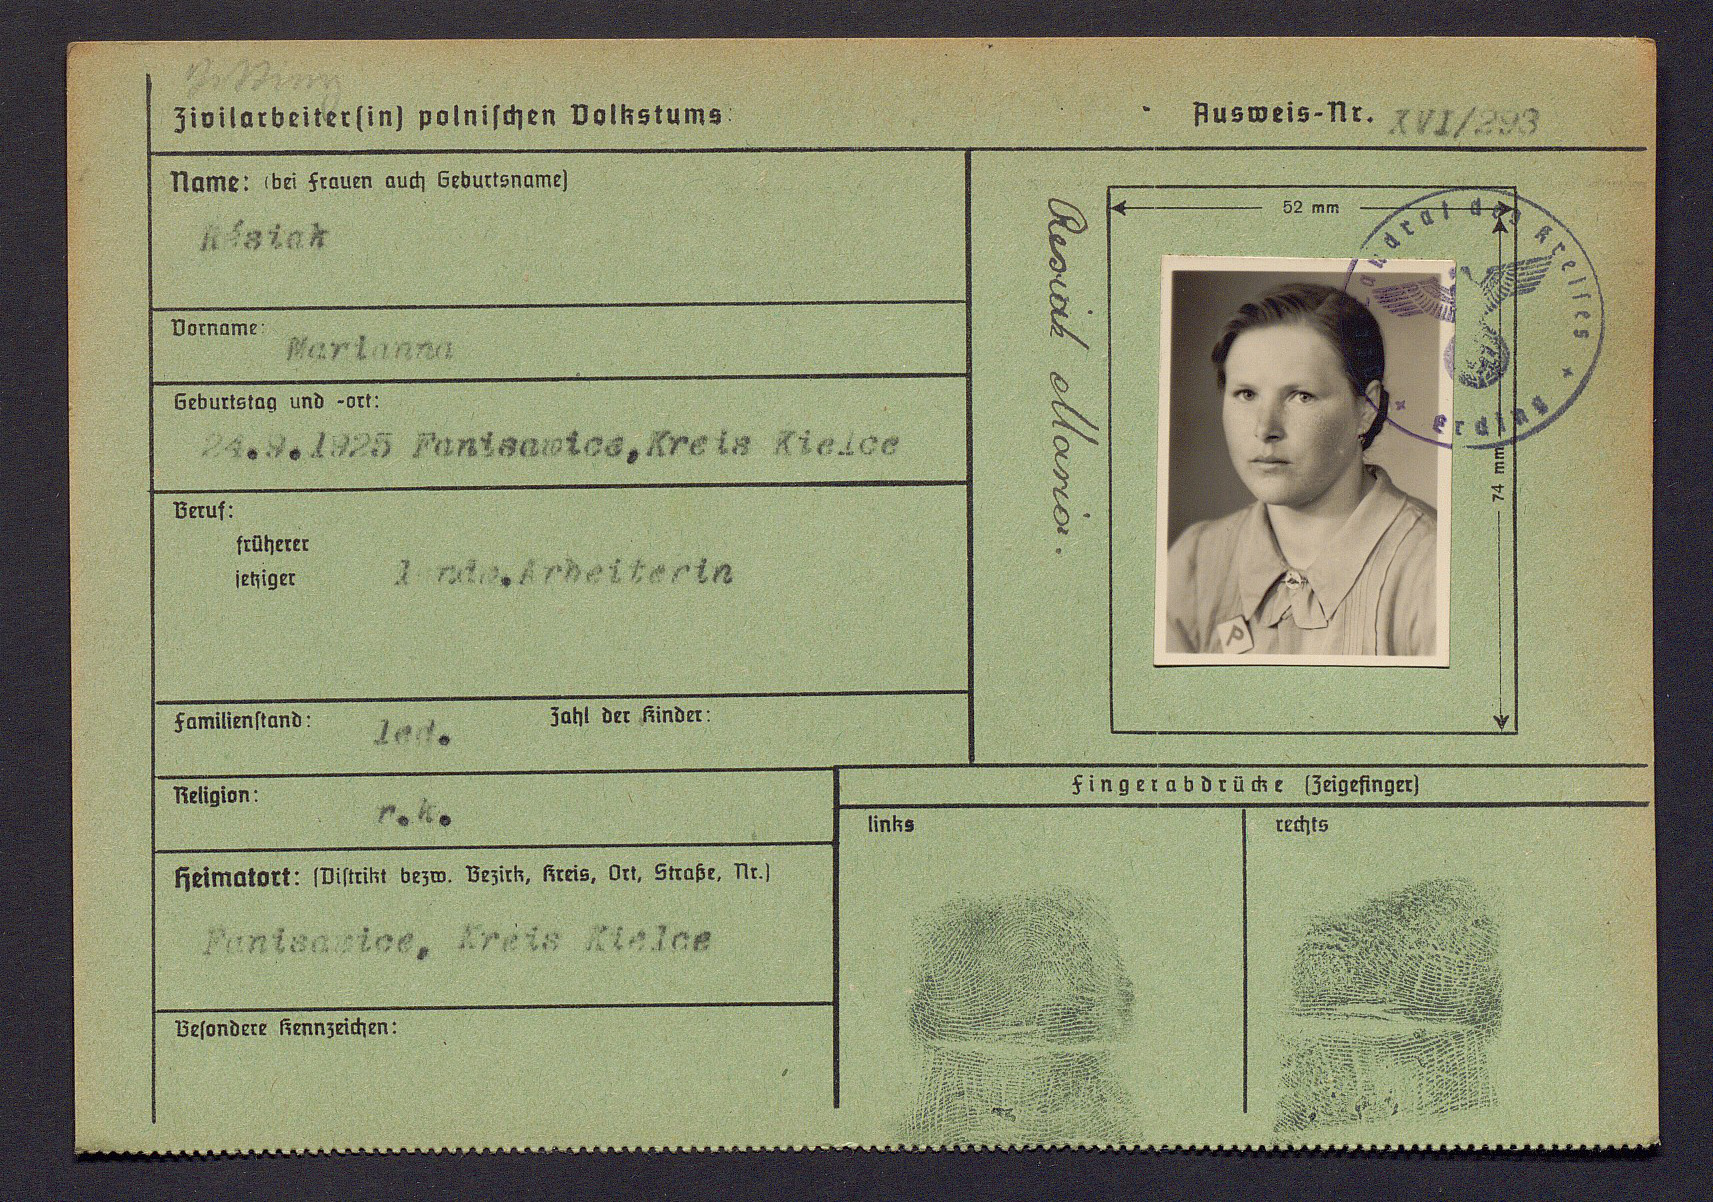 Zivilarbeiter(in) polnischen Volkstums
Ausweis-Nr. XVI/293
Name: (bei Frauen auch Geburtsname)
Résiak
Vorname:
Marianna
Geburtstag und -ort:
24.9.1925 Fanisawice, Kreis Kielce
Beruf:
früherer
jetziger
landw. Arbeiterin
Familienstand: led. Zahl der Kinder:
Religion: r.k.
Heimatort: (Distrikt bezw. Bezirk, Kreis, Ort, Straße, Nr.)
Fanisawice, Kreis Kielce
Besondere Kennzeichen:
Resiak Maria.
52 mm
74 mm
Landrat des Kreises
Erding
P
Fingerabdrücke (Zeigefinger)
links
rechts